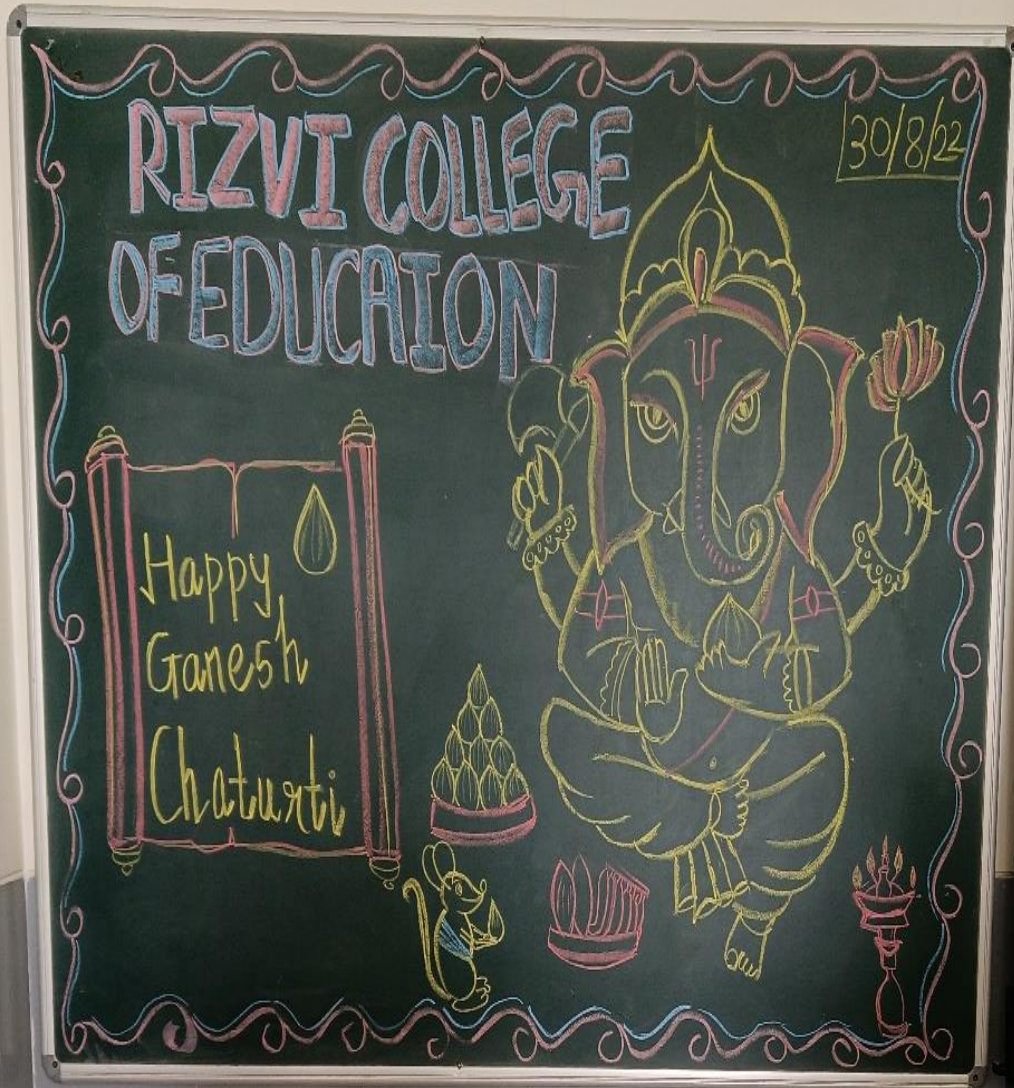 RIZVI COLLEGE
OF EDUCAION
30/8/22
Happy
Ganesh
Chaturti